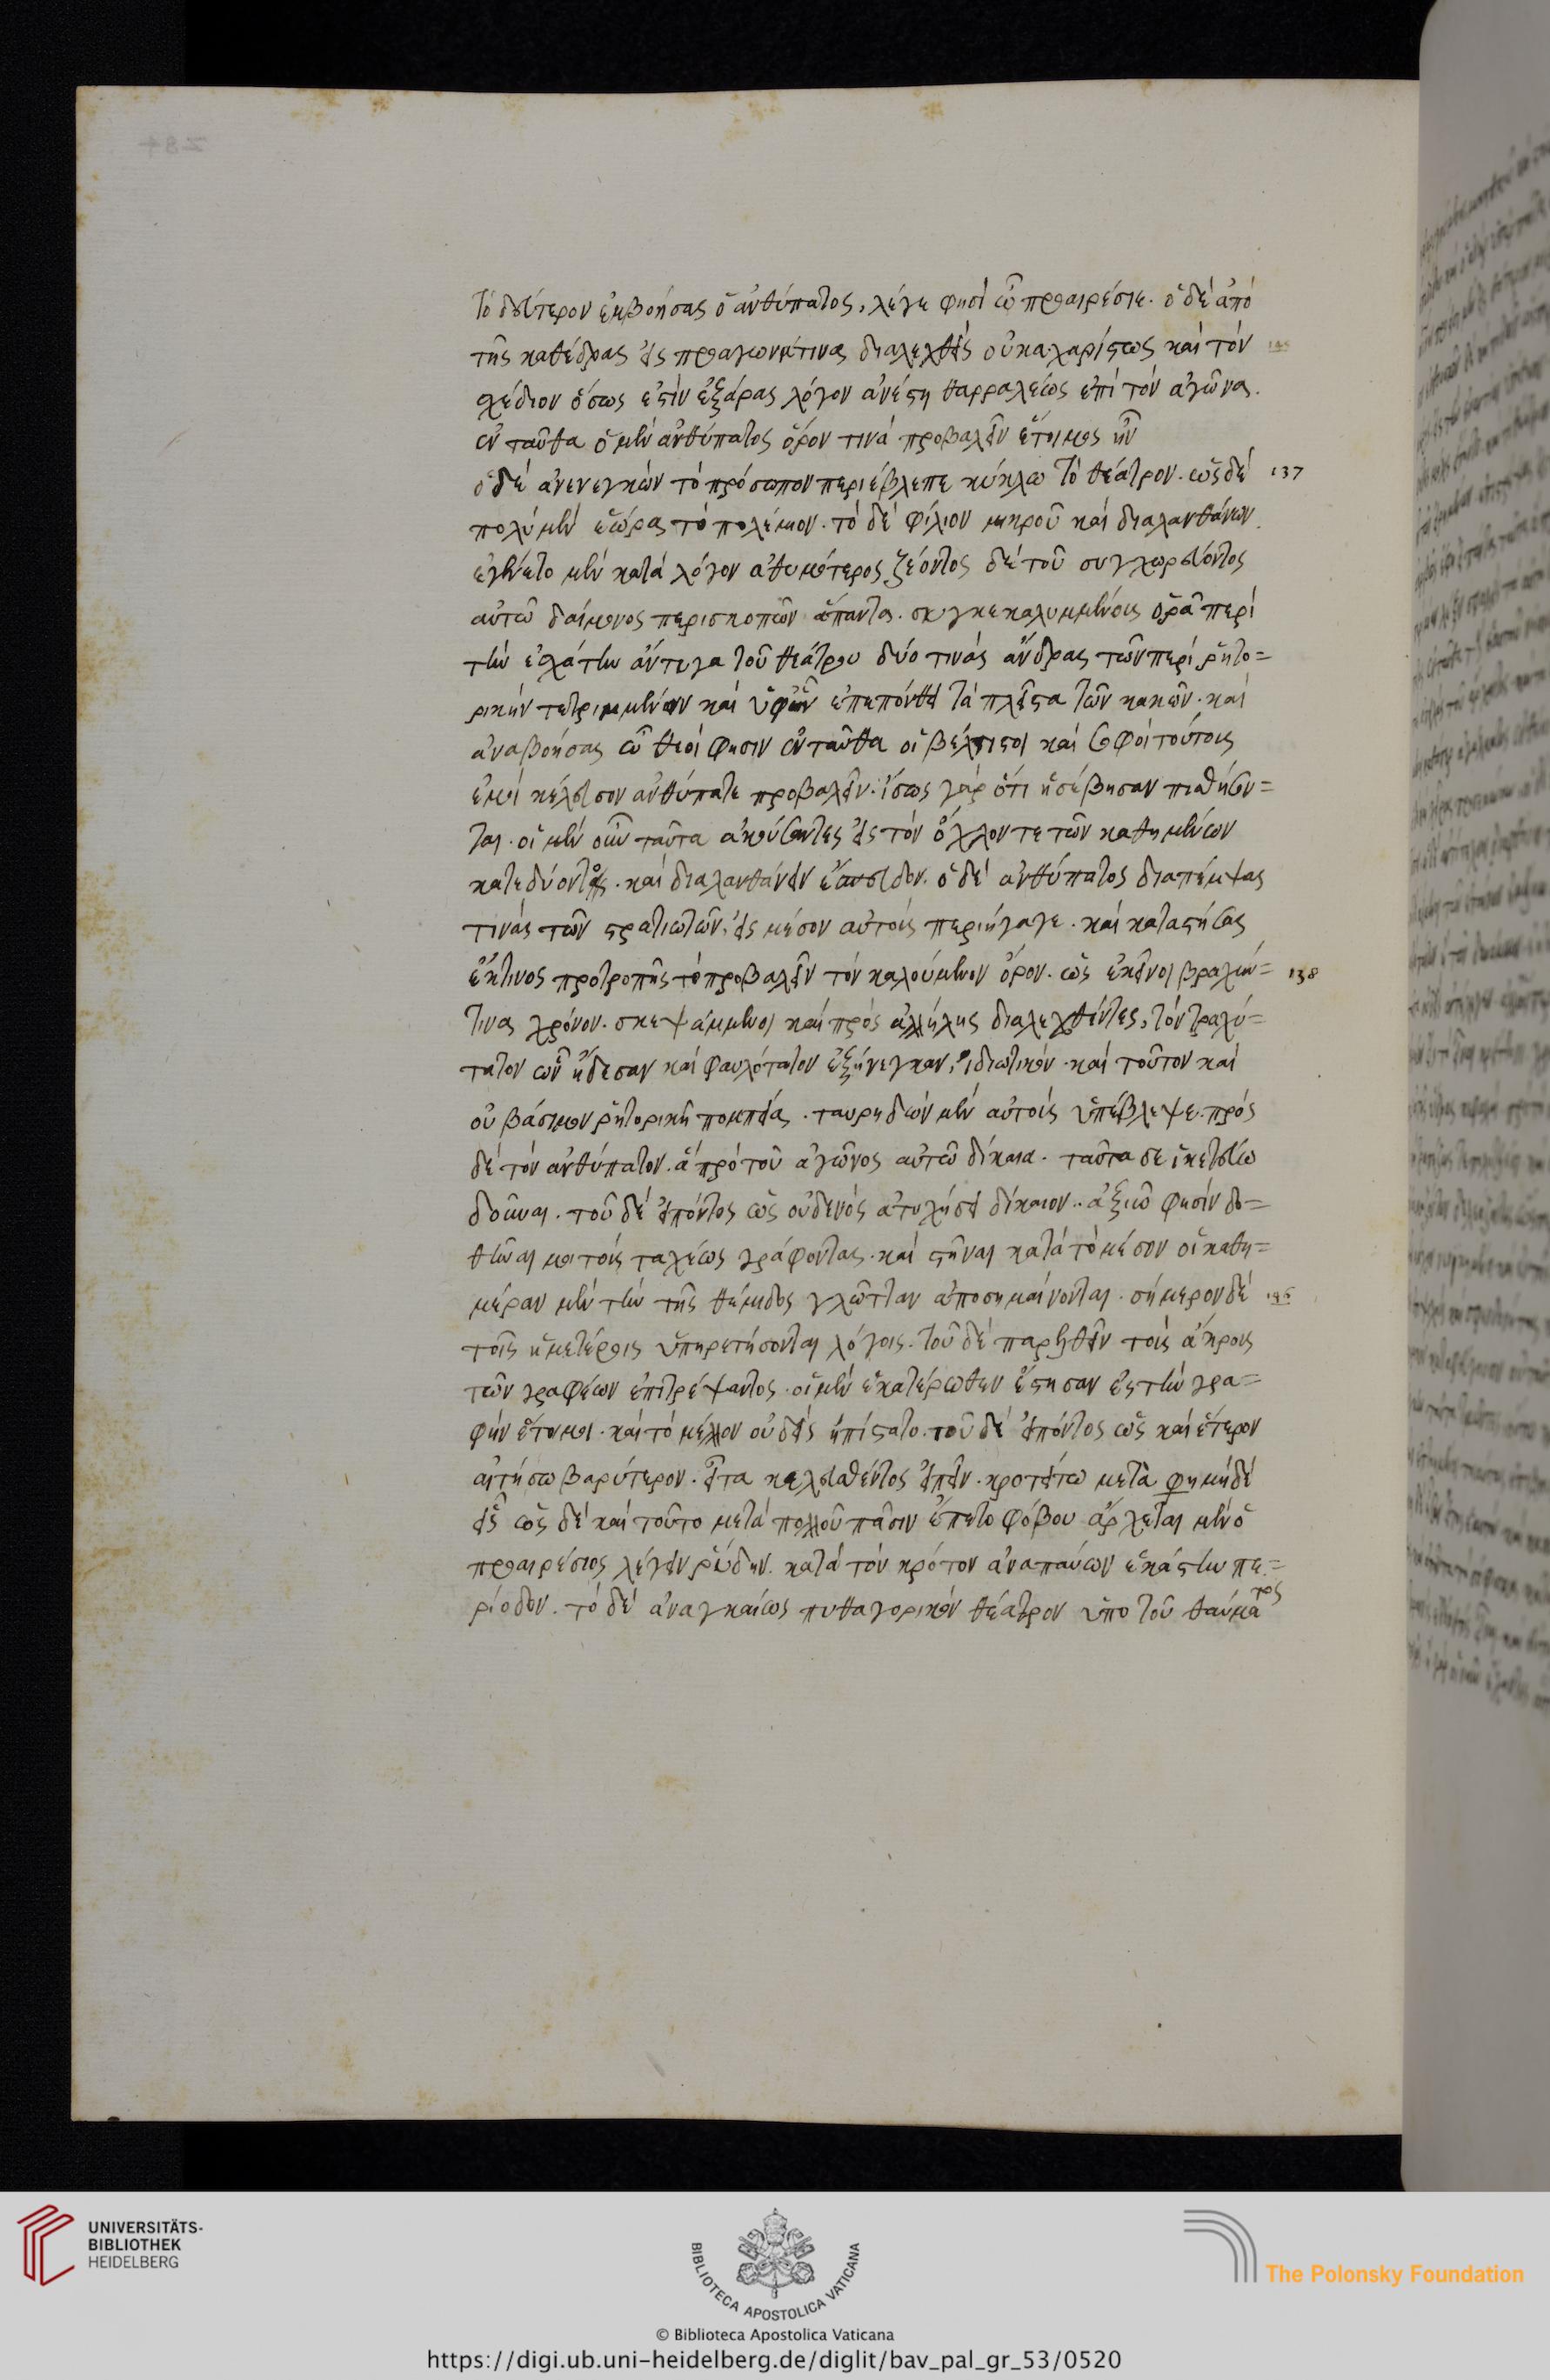 τὸ δεύτερον ἐμβοήσας ὁ ἀνθύπατος, λέγε φησὶ ὦ προαιρέσιε. ὁ δὲ ἀπὸ
τῆς καθέδρας εἰς προαγῶνά τινας διαλεχθεὶς οὐκ ἀχαρίστως καὶ τὸν
σχέδιον ὅσως ἐστὶν ἐξάρας λόγον ἀνέστη θαρραλέως ἐπὶ τὸν ἀγῶνα.
ἐνταῦθα ὁ μὲν ἀνθύπατος ὅρον τινὰ προβαλεῖν ἕτοιμος ἦν
ὁ δὲ ἀνενεγκὼν τὸ πρόσωπον περιέβλεπε κύκλω τὸ θέατρον. ὡς δὲ 137
πολὺ μὲν ἑώρα τὸ πολέμιον. τὸ δὲ φίλιον μικροῦ καὶ διαλανθάνων.
ἐγένετο μὲν κατὰ λόγον ἀθυμότερος ζέοντος δὲ τοῦ συγχορεύοντος
αὐτῶ δαίμονος περισκοπῶν ἅπαντα. συγκεκαλυμμένοις ὁρᾶ περὶ
τὴν ἐσχάτην ἄντυγα τοῦ θεάτρου δύο τινὰς ἄνδρας τῶν περὶ ῥητο=
ρικὴν τετριμμένων καὶ ὑφ' ὧν ἐπεπόνθει τὰ πλεῖστα τῶν κακῶν. καὶ
ἀναβοήσας ὦ θεοὶ φησιν ἐνταῦθα οἱ βέλτιστοι καὶ σοφοὶ τούτοις
ἐμοὶ κέλευσον ἀνθύπατε προβαλεῖν. ἴσως γὰρ ὅτι ἠσέβησαν πεισθήσον=
ται. οἱ μὲν οὖν ταῦτα ἀκούσαντες εἰς τὸν ὄχλον τε τῶν καθημένων
κατεδύοντο. καὶ διαλανθάνειν ἔσπευδον. ὁ δὲ ἀνθύπατος διαπέμψας
τινὰς τῶν στρατιωτῶν, εἰς μέσον αὐτοὺς περιήγαγε. καὶ καταστήσας
ἔκ τινος προτροπῆς τὸ προβαλεῖν τὸν καλούμενον ὅρον. ὡς ἐκεῖνοι βραχύν= 138
τινα χρόνον. σκεψάμμενοι καὶ πρὸς ἀλλήλους διαλεχθέντες, τὸν τραχύ=
τατον ὧν ᾔδεσαν καὶ φαυλότατον ἐξήνεγκαν, ἰδιωτικὸν. καὶ τοῦτον καὶ
οὐ βάσιμον ῥητορικῆ πομπείας. ταυρηδὼν μὲν αὐτοὺς ὑπέβλεψε. πρὸς
δὲ τὸν ἀνθύπατον. ἃ πρὸ τοῦ ἀγῶνος αὐτῶ δίκαια. ταῦτα σε ἱκετεύω
δοῦναι. τοῦ δὲ εἰπόντος ὡς οὐδενὸς ἀτυχήσει δίκαιον. ἀξιῶ φησὶν δο=
θῆναι μοι τοὺς ταχέως γράφοντας. καὶ στῆναι κατὰ τὸ μέσον οἳ καθη=
μέραν μὲν τὴν τῆς θέμιδος γλῶτταν ἀποσημαίνονται. σήμερον δὲ
τοῖς ἡμετέροις ὑπηρετήσονται λόγοις. τοῦ δὲ παρελθεῖν τοὺς ἄκρους
τῶν γραφέων ἐπιτρέψαντος. οἱ μὲν ἑκατέρωθεν ἔστησαν ἐς τὴν γρα=
φὴν ἕτοιμοι. καὶ τὸ μέλλον οὐδεὶς ἠπίστατο. τοῦ δὲ εἰπόντος ὡς καὶ ἕτερον
αἰτήσω βαρύτερον. εἶτα κελευσθέντος εἰπεῖν. κροτείτω με φησι μηδὲ
εἷς ὡς δὲ καὶ τοῦτο μετὰ πολλοῦ πᾶσιν ἐπετο φόβου ἄρχεται μὲν ὁ
προαιρέσιος λέγειν ῥύδην. κατὰ τὸν κρότον ἀναπαύων ἑκάστην πε=
ρίοδον. τὸ δὲ ἀναγκαίως πυθαγορικὸν θέατρον ὑπὸ τοῦ θαύματος
UNIVERSITÄTS-
BIBLIOTHEK
HEIDELBERG
BIBLIOTECA APOSTOLICA VATICANA
The Polonsky Foundation
© Biblioteca Apostolica Vaticana
https://digi.ub.uni-heidelberg.de/diglit/bav_pal_gr_53/0520